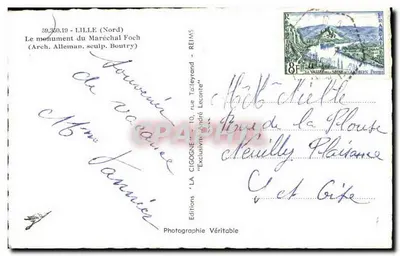 59.350.19 - LILLE (Nord)
Le monument du Maréchal Foch
(Arch. Alleman, sculp. Boutry)
Souvenir
de vacance
Mme Vannier
Editions "LA CIGOGNE" 10, rue Talleyrand - REIMS
"Exclusivité André Leconte"
8F
Rue de la
Neuilly Plaisance
S et Oise
Photographie Véritable
CARPOSTCARD